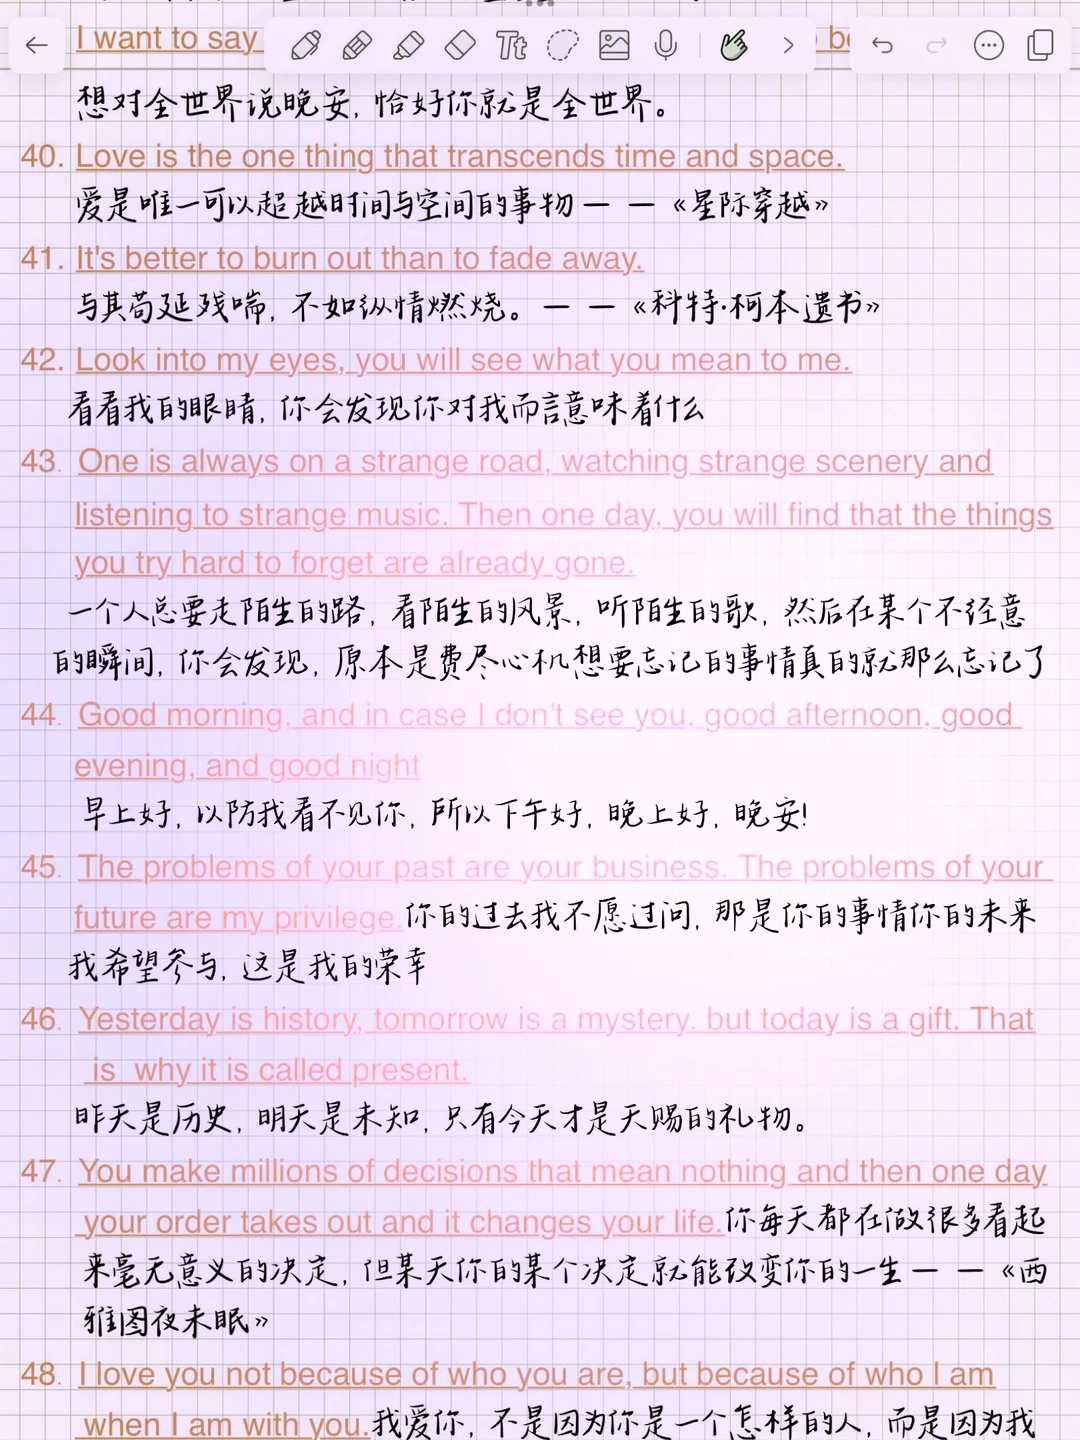 I want to say
想对全世界说晚安, 恰好你就是全世界。
40. Love is the one thing that transcends time and space.
爱是唯一可以超越时间与空间的事物一 一 《星际穿越》
41. It's better to burn out than to fade away.
与其苟延残喘, 不如纵情燃烧。一 一 《科特·柯本遗书》
42. Look into my eyes, you will see what you mean to me.
看看我的眼睛, 你会发现你对我而言意味着什么
43. One is always on a strange road, watching strange scenery and
listening to strange music. Then one day, you will find that the things
you try hard to forget are already gone.
一个人总要走陌生的路, 看陌生的风景, 听陌生的歌, 然后在某个不经意
的瞬间, 你会发现, 原本是费尽心机想要忘记的事情真的就那么忘记了
44. Good morning, and in case I don't see you, good afternoon, good
evening, and good night
早上好, 以防我看不见你, 所以下午好, 晚上好, 晚安!
45. The problems of your past are your business. The problems of your
future are my privilege.你的过去我不愿过问, 那是你的事情你的未来
我希望参与, 这是我的荣幸
46. Yesterday is history, tomorrow is a mystery. but today is a gift. That
is why it is called present.
昨天是历史, 明天是未知, 只有今天才是天赐的礼物。
47. You make millions of decisions that mean nothing and then one day
your order takes out and it changes your life.你每天都在做很多看起
来毫无意义的决定, 但某天你的某个决定就能改变你的一生一 一 《西
雅图夜未眠》
48. I love you not because of who you are, but because of who I am
when I am with you.我爱你, 不是因为你是一个怎样的人, 而是因为我